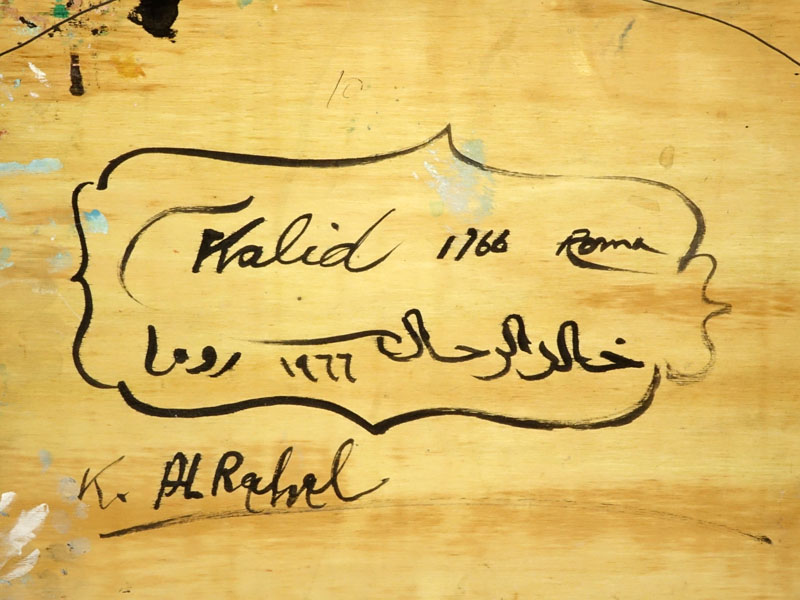 Khalid 1966 Roma
خالد الرحال ١٩٦٦ روما
K. AL Rahal